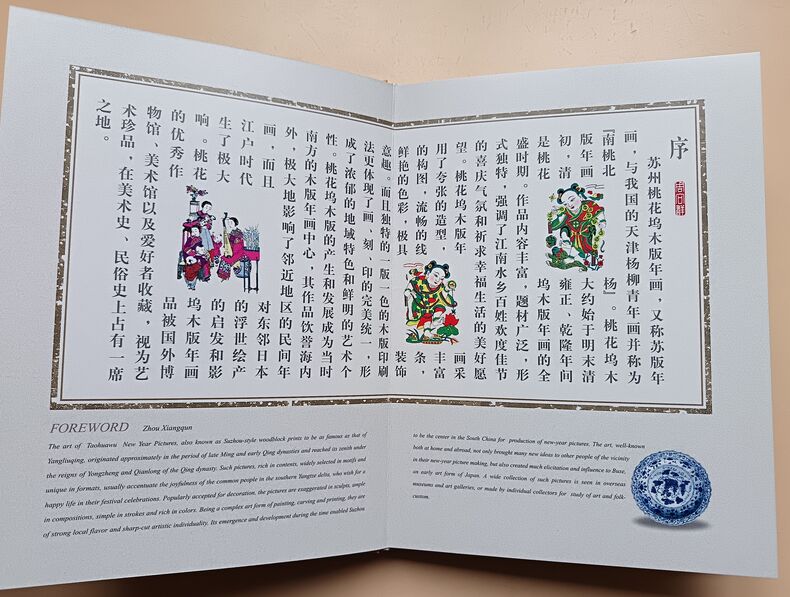 序
苏州桃花坞木版年画，又称苏版年
画，与我国的天津杨柳青年画并称为
『南桃北杨』。桃花坞木
版年画大约始于明末清
初，清雍正、乾隆年间
是桃花坞木版年画的全
盛时期。作品内容丰富，题材广泛，形
式独特，强调了江南水乡百姓欢度佳节
的喜庆气氛和祈求幸福生活的美好愿
望。桃花坞木版年画采
用了夸张的造型，丰富
的构图，流畅的线条，
鲜艳的色彩，极具装饰
意趣。而且独特的一版一色的木版印刷
法更体现了画、刻、印的完美统一，形
成了浓郁的地域特色和鲜明的艺术个
性。桃花坞木版的产生和发展成为当时
南方的木版年画中心，其作品饮誉海内
外，极大地影响了邻近地区的民间年
画，而且对东邻日本
江户时代的浮世绘产
生了极大的启发和影
响。桃花坞木版年画
的优秀作品被国外博
物馆、美术馆以及爱好者收藏，视为艺
术珍品，在美术史、民俗史上占有一席
之地。
FOREWORD Zhou Xiangqun
The art of Taohuawu New Year Pictures, also known as Suzhou-style woodblock prints to be as famous as that of
Yangliuqing, originated approximately in the period of late Ming and early Qing dynasties and reached its zenith under
the reigns of Yongzheng and Qianlong of the Qing dynasty. Such pictures, rich in contents, widely selected in motifs and
unique in formats, usually accentuate the joyfulness of the common people in the southern Yangtse delta, who wish for a
happy life in their festival celebrations. Popularly accepted for decoration, the pictures are exaggerated in sculpts, ample
in compositions, simple in strokes and rich in colors. Being a complex art form of painting, carving and printing, they are
of strong local flavor and sharp-cut artistic individuality. Its emergence and development during the time enabled Suzhou
to be the center in the South China for production of new-year pictures. The art, well-known
both at home and abroad, not only brought many new ideas to other people of the vicinity
in their new-year picture making, but also created much elicitation and influence to Buse,
an early art form of Japan. A wide collection of such pictures is seen in overseas
museums and art galleries, or made by individual collectors for study of art and folk-
custom.